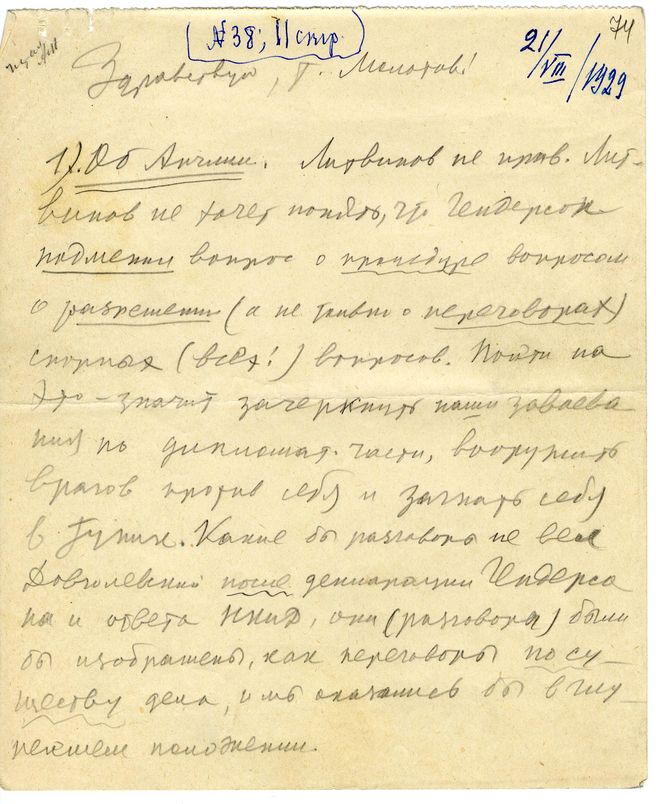 74
(№ 38; 11 стр.)
21/VIII/1929
Здравствуй, т. Молотов!
1). Об Англии. Литвинов не прав. Лит-
винов не хочет понять, что Гендерсон
подменил вопрос о процедуре вопросом
о разрешении (а не только о переговорах)
спорных (всех!) вопросов. Пойти на
это – значит зачеркнуть наши завоева-
ния по дипломат. части, вооружить
врагов против себя и загнать себя
в тупик. Какие бы разговоры не вел
Довгалевский после декларации Гендерсо
на и ответа НКИД, они (разговоры) были
бы изображены, как переговоры по су-
ществу дела, и мы оказались бы в глу-
пейшем положении.